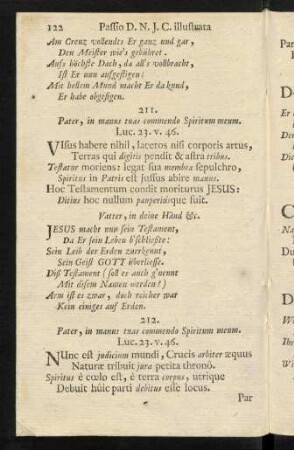 122 Passio D. N. J. C. illustrata
Am Creuz vollendet Er ganz und gar,
Den Meister wie's gebühret.
Aufs höchste Dach, da all's vollbracht,
Ist Er nun aufgestigen:
Mit hellem Mund macht Er da kund,
Er habe obgesigen.
211.
Pater, in manus tuas commendo Spiritum meum.
Luc. 23. v. 46.
VIsus habere nihil, laceros nisi corporis artus,
Terras qui digitis pendit & astra tribus.
Testatur moriens: legat sua membra sepulchro,
Spiritus in Patris est jussus abire manus.
Hoc Testamentum condit moriturus JESUS:
Ditius hoc nullum pauperiúsque fuit.
Vatter, in deine Händ &c.
JESUS macht nun sein Testament,
Da Er sein Leben b'schliesste:
Sein Leib der Erden zuerkennt,
Sein Geist GOTT überliesse.
Diß Testament (soll es auch g'nennt
Mit disem Namen werden?)
Arm ist es zwar, doch reicher war
Kein einiges auf Erden.
212.
Pater, in manus tuas commendo Spiritum meum.
Luc. 23. v. 46.
NUnc est judicium mundi, Crucis arbiter æquus
Naturæ tribuit jura petita thronô.
Spiritus è cœlo est, è terra corpus, utrique
Debuit húic parti debitus esse locus.
Par